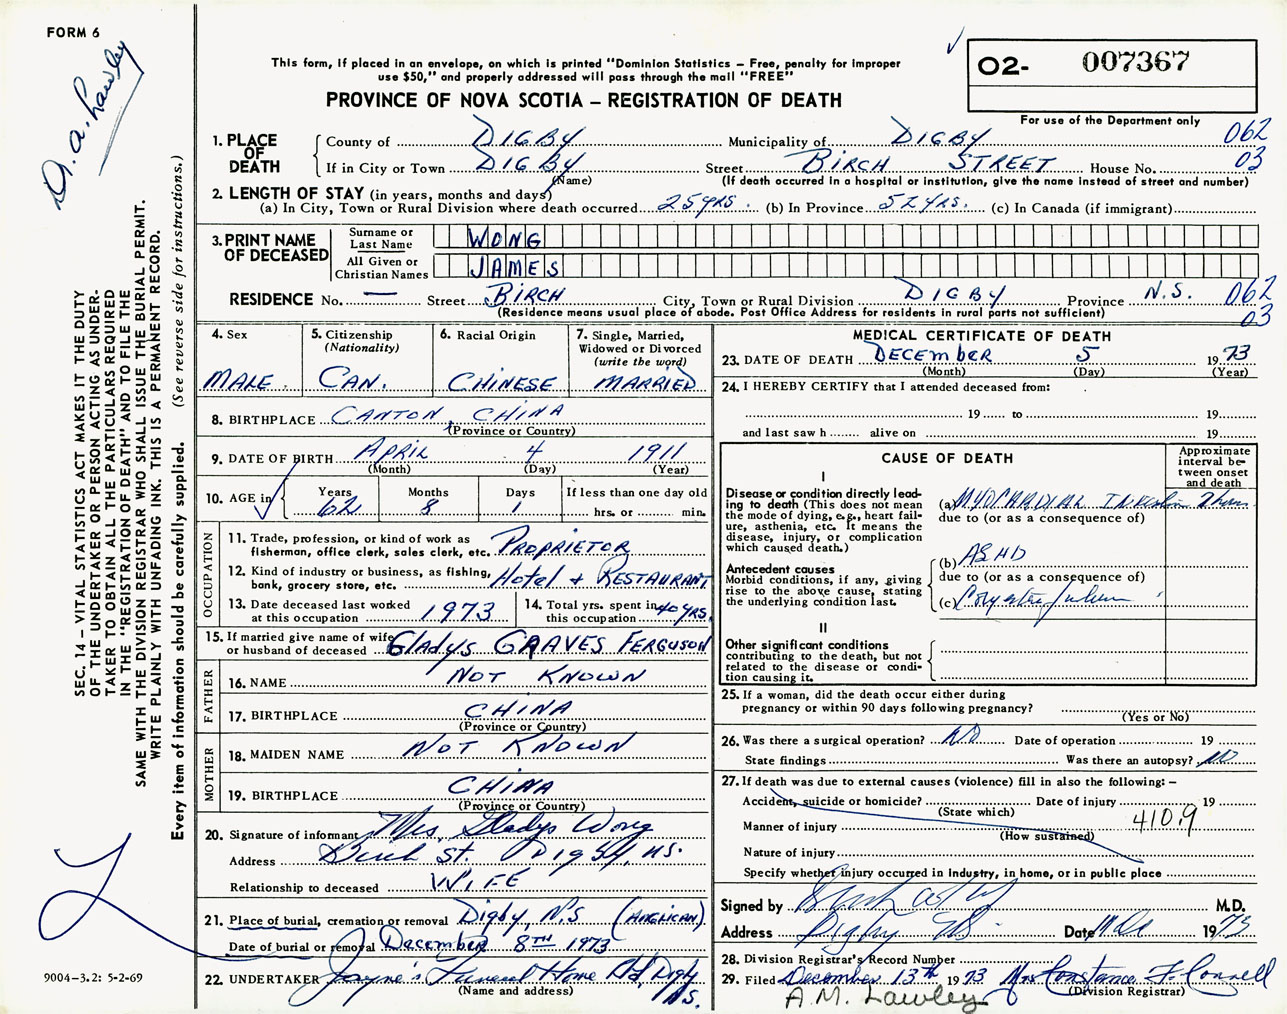 FORM 6
A. A. Lawley
This form, if placed in an envelope, on which is printed "Dominion Statistics – Free, penalty for improper
use $50," and properly addressed will pass through the mail "FREE"
PROVINCE OF NOVA SCOTIA – REGISTRATION OF DEATH
02- 007367
For use of the Department only
062
03
1. PLACE OF DEATH
County of DIGBY Municipality of DIGBY
If in City or Town DIGBY Street BIRCH STREET House No.
(Name) (If death occurred in a hospital or institution, give the name instead of street and number)
2. LENGTH OF STAY (in years, months and days)
(a) In City, Town or Rural Division where death occurred 25 YRS. (b) In Province 52 YRS. (c) In Canada (if immigrant)
3. PRINT NAME OF DECEASED
Surname or Last Name WONG
All Given or Christian Names JAMES
RESIDENCE No. — Street BIRCH City, Town or Rural Division DIGBY Province N.S. 062
03
(Residence means usual place of abode. Post Office Address for residents in rural parts not sufficient)
4. Sex MALE
5. Citizenship (Nationality) CAN.
6. Racial Origin CHINESE
7. Single, Married, Widowed or Divorced (write the word) MARRIED
8. BIRTHPLACE CANTON, CHINA
(Province or Country)
9. DATE OF BIRTH APRIL 4 1911
(Month) (Day) (Year)
10. AGE in Years 62 Months 8 Days 1 If less than one day old
hrs. or min.
OCCUPATION
11. Trade, profession, or kind of work as fisherman, office clerk, sales clerk, etc. PROPRIETOR
12. Kind of industry or business, as fishing, bank, grocery store, etc. Hotel + RESTAURANT
13. Date deceased last worked at this occupation 1973
14. Total yrs. spent in this occupation 40 YRS.
15. If married give name of wife or husband of deceased Gladys GRAVES FERGUSON
FATHER
16. NAME NOT KNOWN
17. BIRTHPLACE CHINA
(Province or Country)
MOTHER
18. MAIDEN NAME NOT KNOWN
19. BIRTHPLACE CHINA
(Province or Country)
20. Signature of informant Mrs. Gladys Wong
Address Birch St. Digby, NS.
Relationship to deceased WIFE
21. Place of burial, cremation or removal Digby, N.S (ANGLICAN)
Date of burial or removal December 8TH 1973
22. UNDERTAKER Jayne's Funeral Home Ltd, Digby
N.S.
(Name and address)
MEDICAL CERTIFICATE OF DEATH
23. DATE OF DEATH DECEMBER 5 1973
(Month) (Day) (Year)
24. I HEREBY CERTIFY that I attended deceased from:
19 to 19
and last saw h alive on 19
CAUSE OF DEATH
Approximate interval between onset and death
I
Disease or condition directly leading to death (This does not mean the mode of dying, e.g., heart failure, asthenia, etc. It means the disease, injury, or complication which caused death.)
(a) MYOCARDIAL
due to (or as a consequence of)
(b) ASHD
due to (or as a consequence of)
(c)
Antecedent causes
Morbid conditions, if any, giving rise to the above cause, stating the underlying condition last.
II
Other significant conditions
contributing to the death, but not related to the disease or condition causing it.
25. If a woman, did the death occur either during pregnancy or within 90 days following pregnancy?
(Yes or No)
26. Was there a surgical operation? NO Date of operation 19
State findings Was there an autopsy? NO
27. If death was due to external causes (violence) fill in also the following: –
Accident, suicide or homicide? Date of injury 19
(State which)
Manner of injury 410.9
(How sustained)
Nature of injury
Specify whether injury occurred in industry, in home, or in public place
Signed by M.D.
Address Digby NS. Date 1973
28. Division Registrar's Record Number
29. Filed December 13th 1973 Mrs Constance F. Connell
(Division Registrar)
A.M. Lawley
SEC. 14 – VITAL STATISTICS ACT MAKES IT THE DUTY
OF THE UNDERTAKER OR PERSON ACTING AS UNDER-
TAKER TO OBTAIN ALL THE PARTICULARS REQUIRED
IN THE "REGISTRATION OF DEATH" AND TO FILE THE
SAME WITH THE DIVISION REGISTRAR WHO SHALL ISSUE THE BURIAL PERMIT.
WRITE PLAINLY WITH UNFADING INK. THIS IS A PERMANENT RECORD.
Every item of information should be carefully supplied. (See reverse side for instructions.)
9004–3.2: 5-2-69